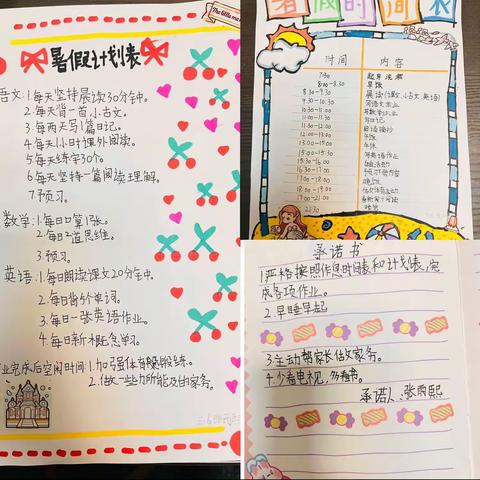 The little me
暑假计划表
语文:1.每天坚持晨读30分钟。
2.每天背一首小古文。
3.每两天写1篇日记。
4.每天1小时课外阅读。
5.每天练字30个。
6.每天坚持一篇阅读理解。
7.预习。
数学:1.每日口算15张。
2.每日2道思维。
3.预习。
英语:1.每日朗读课文20分钟。
2.每日背外单词。
3.每日一张英语作业。
4.每日新概念学习。
业完成后空闲时间:1.加强体育锻炼。
2.做一些力所能及的家务。
暑假时间表
时间 内容
7:30 起床洗漱
8:00-8:30 早饭
8:30-9:30 晨读(语文、小古文、英语)
9:30-10:30 写语文作业
10:30-11:00 写数学作业
11:00-11:30 写日记
11:30-12:00
12:00-13:00 午饭
13:00-15:00 午休
15:00-15:30 写英语作业
15:30-16:00 自由活动
16:00-17:00 预习内容
17:00-18:00 晚饭
18:00-19:00 做文体活动
19:00-21:00
21:30 睡觉
承诺书
1.严格按照作息时间表和计划表,完
成各项作业。
2.早睡早起
3.主动帮家长做家务。
4.少看电视,多看书。
承诺人:张雨熙